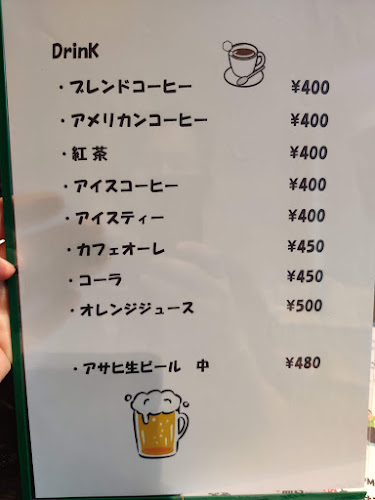 Drink
・ブレンドコーヒー ¥400
・アメリカンコーヒー ¥400
・紅茶 ¥400
・アイスコーヒー ¥400
・アイスティー ¥400
・カフェオーレ ¥450
・コーラ ¥450
・オレンジジュース ¥500
・アサヒ生ビール 中 ¥480